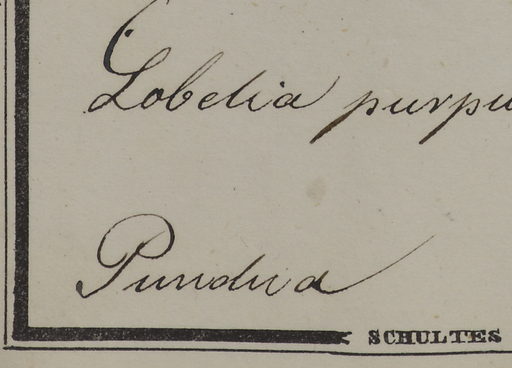 Lobelia purpu
Pundua
SCHULTES